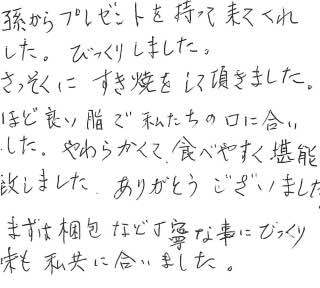 孫からプレゼントを持って来てくれ
した。びっくりしました。
さっそくにすき焼をして頂きました。
ほど良い脂で私たちの口に合い
した。やわらかくて、食べやすく堪能
致しました。ありがとうございました
まずは梱包など丁寧な事にびっくり
味も私共に合いました。